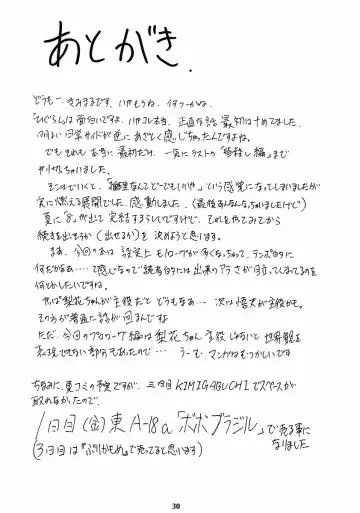 あとがき.
どうもー、きみまるです。いやもうね、何つーかね。
「ひぐらし」は面白いですよ、いやコレ本当。正直な話最初はナメてました。
明るい日常サイドが逆にあざとく感じちゃったんですよね。
でもそれも本当に最初だけ、一気にラストの「祭殺し編」まで
やり切っちゃいました。
エンディングでいくと、「推理なんてどーでもいいや」という感覚になってしまいましたが
実に燃える展開でした。感動しました。(最後あんなんなっちゃいましたけど)
夏に「8」が出て完結するらしいですけど、それをやってみてから
続きを出そうか(出せるか)を決めようと思います。
まぁ、今回の本は設定上モノローグが多くなっちゃって、テンポ的に
何だかなぁ…って感じなので読者的には出来のアラさが目立ってしまってるのを
何とかしたいですね。
やっぱ梨花ちゃんが主役だとどうもなあ…次は悟史が主役かも。
その方が普通に話が回るんですよ
ただ、今回のプロローグ編は梨花ちゃん主役じゃないと世界観を
表現できない部分もあったので…うーむ、マンガはむつかしいです
ちなみに、夏コミの予定ですが、三日目KIMIGABUCHIでスペースが
取れなかったので、
1日目(金)東A-18a「ボボブラジル」で売る事に
なりました
(3日目は「ぷりかもめ」で売ってると思います)
30